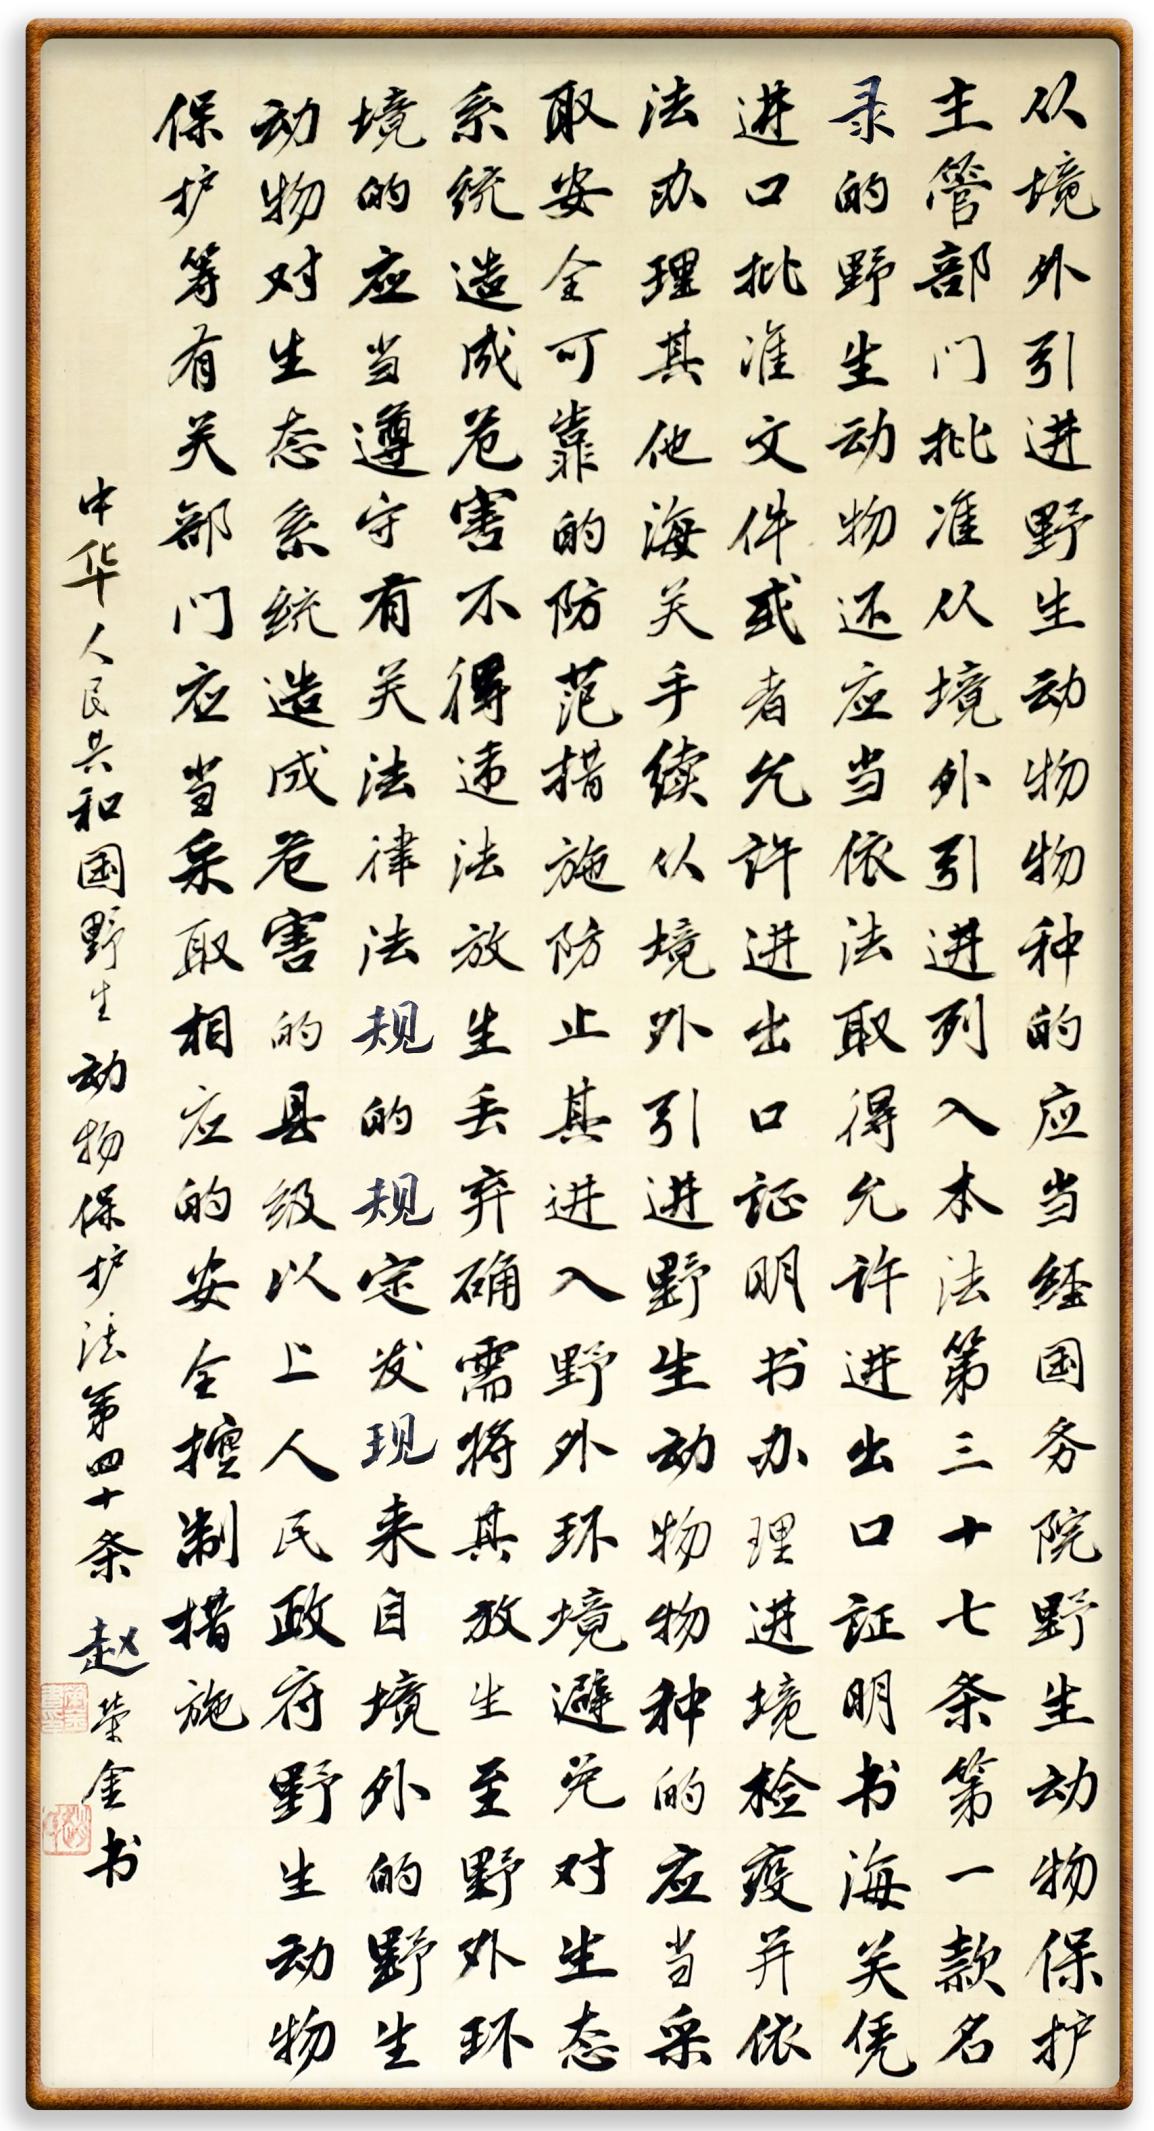 从境外引进野生动物物种的应当经国务院野生动物保护
主管部门批准从境外引进列入本法第三十七条第一款名
录的野生动物还应当依法取得允许进出口证明书海关凭
进口批准文件或者允许进出口证明书办理进境检疫并依
法办理其他海关手续从境外引进野生动物物种的应当采
取安全可靠的防范措施防止其进入野外环境避免对生态
系统造成危害不得违法放生丢弃确需将其放生至野外环
境的应当遵守有关法律法规的规定发现来自境外的野生
动物对生态系统造成危害的县级以上人民政府野生动物
保护等有关部门应当采取相应的安全控制措施
中华人民共和国野生动物保护法第四十条 赵荣金书